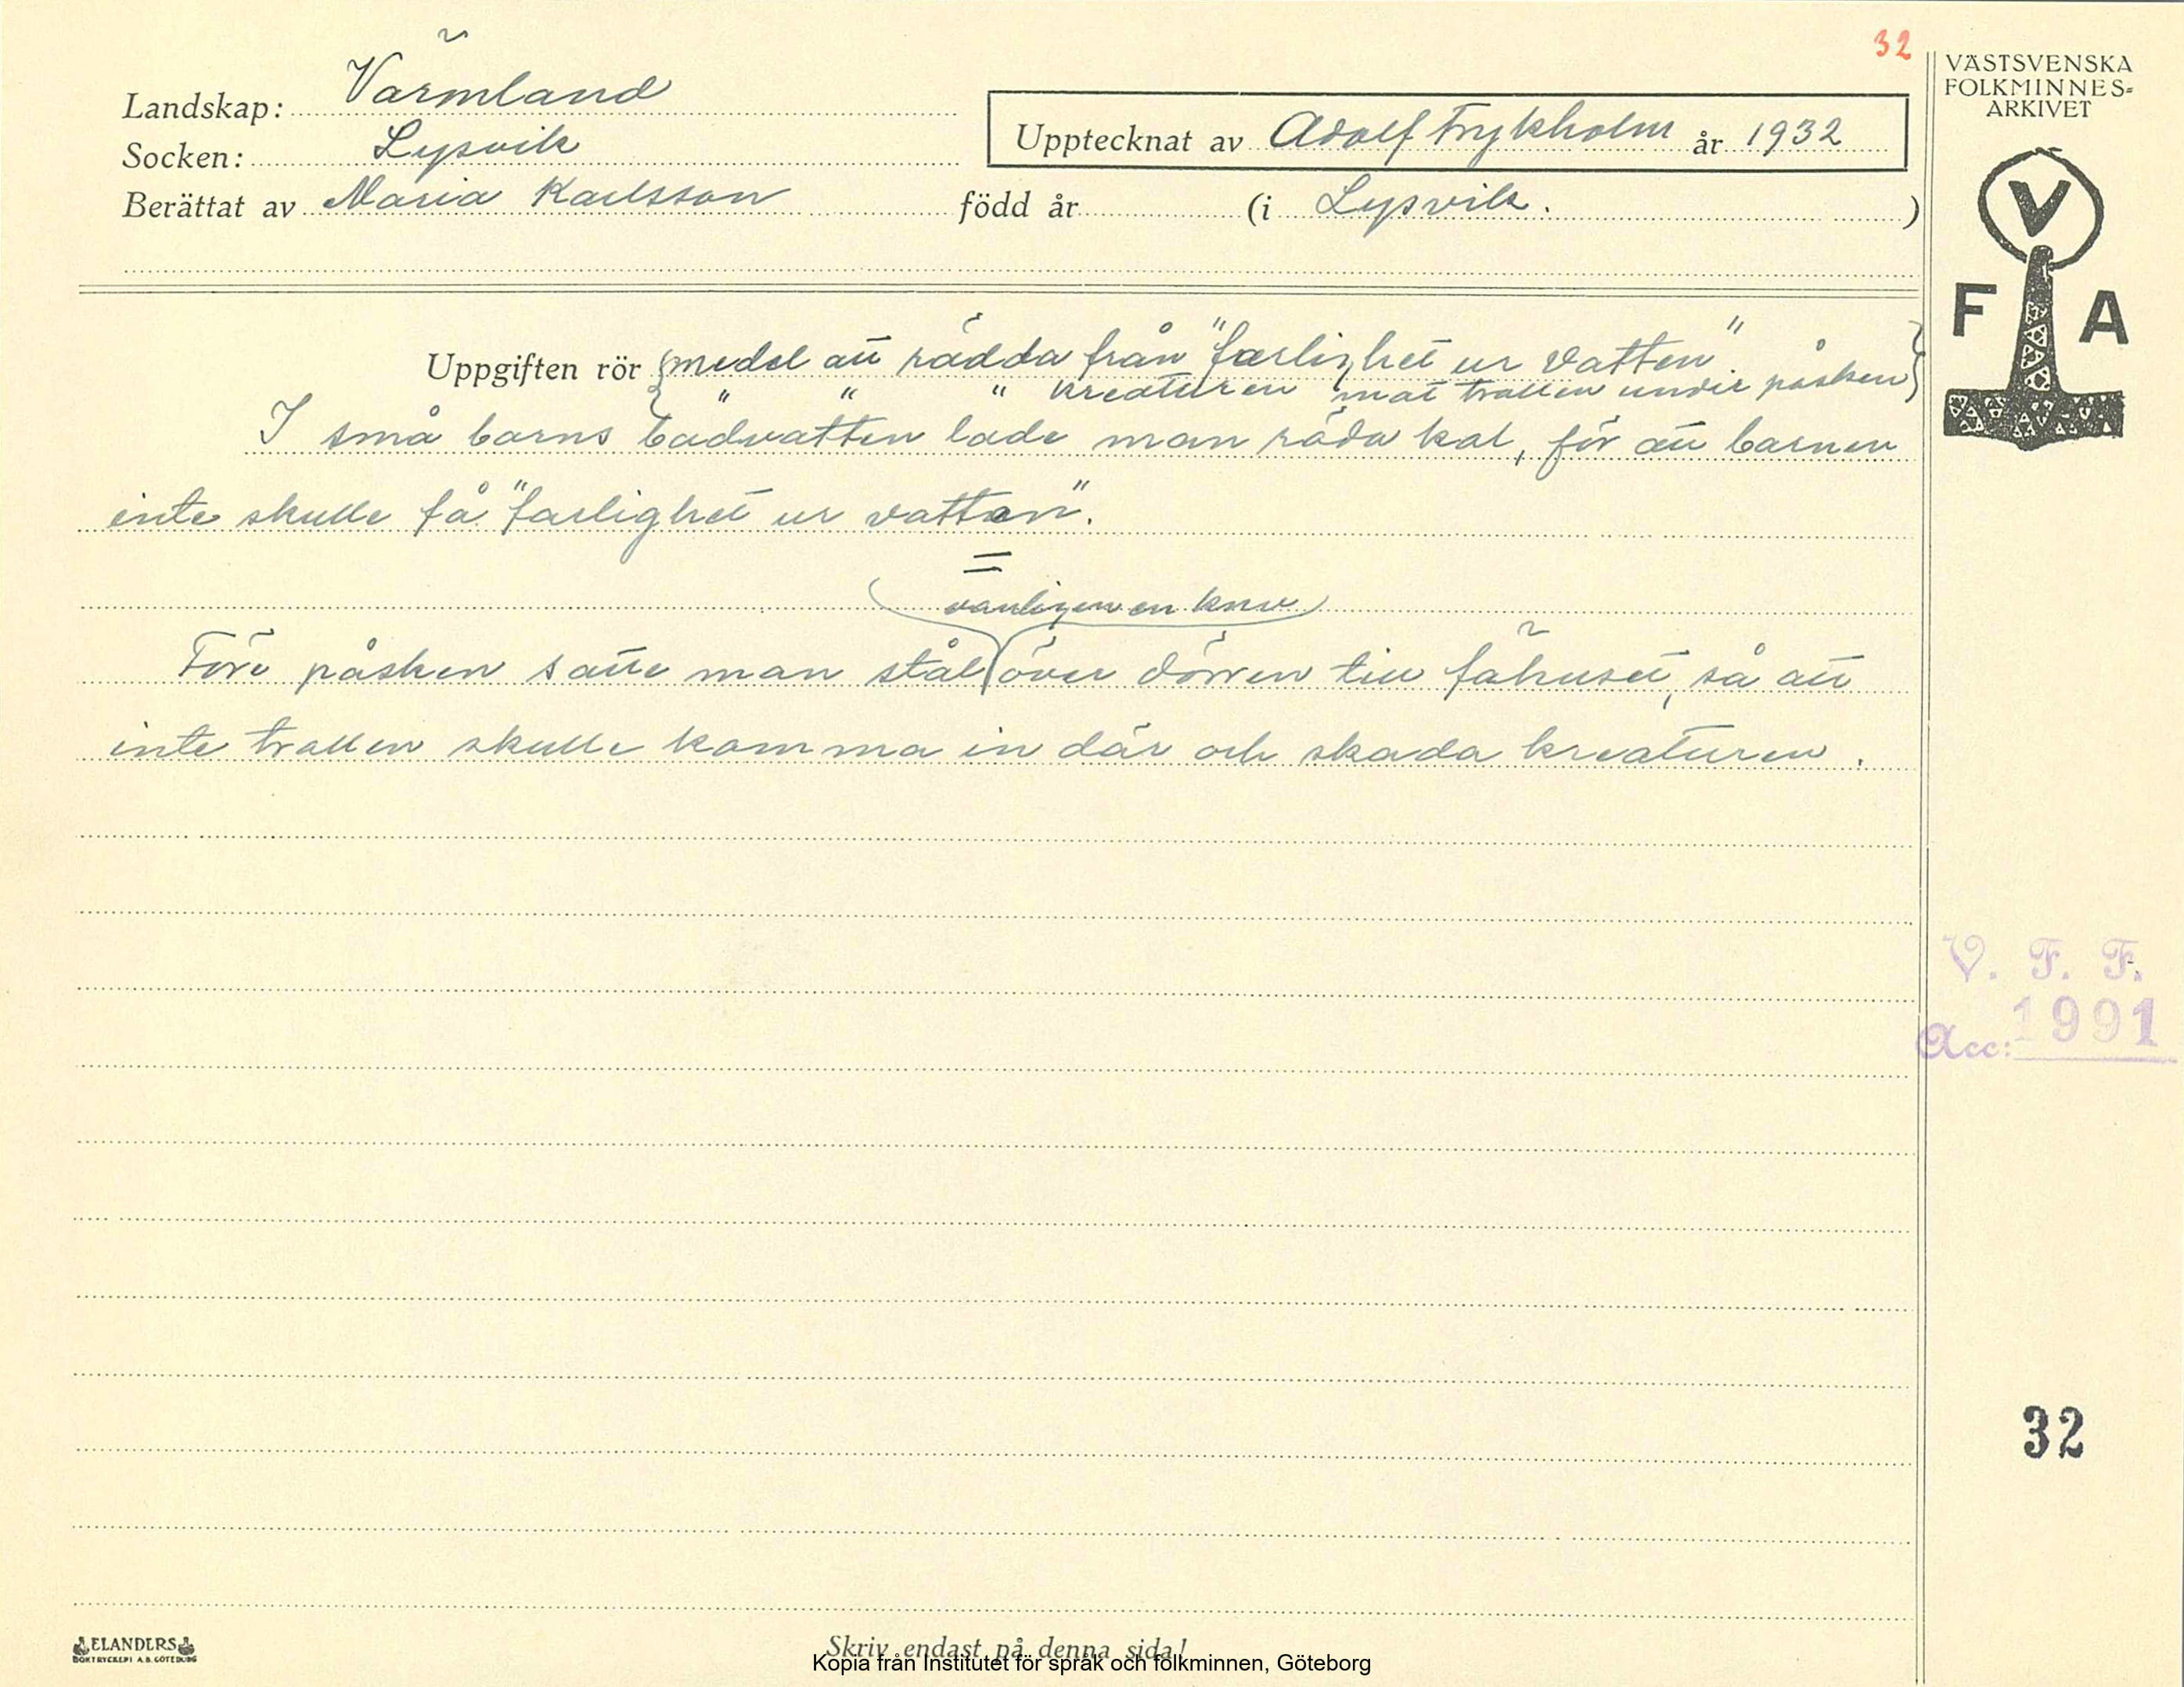 32
VÄSTSVENSKA
FOLKMINNES-
ARKIVET
Landskap: Värmland
Socken: Lysvik
Upptecknat av Adolf Frykholm år 1932
Berättat av Maria Karlsson född år (i Lysvik. )
V
F A
Uppgiften rör {medel att rädda från "farlighet ur vatten"
" " " kreaturen mot trollen under påsken}
I små barns badvatten lade man röda kol, för att barnen
inte skulle få "farlighet ur vatten".
=
vanligen en kniv
Före påsken satte man stål över dörren till fähuset, så att
inte trollen skulle komma in där och skada kreaturen.
V. F. F.
Acc: 1991
32
ELANDERS
BOKTRYCKERI A.B. GÖTEBORG
Skriv endast på denna sida!
Kopia från Institutet för språk och folkminnen, Göteborg